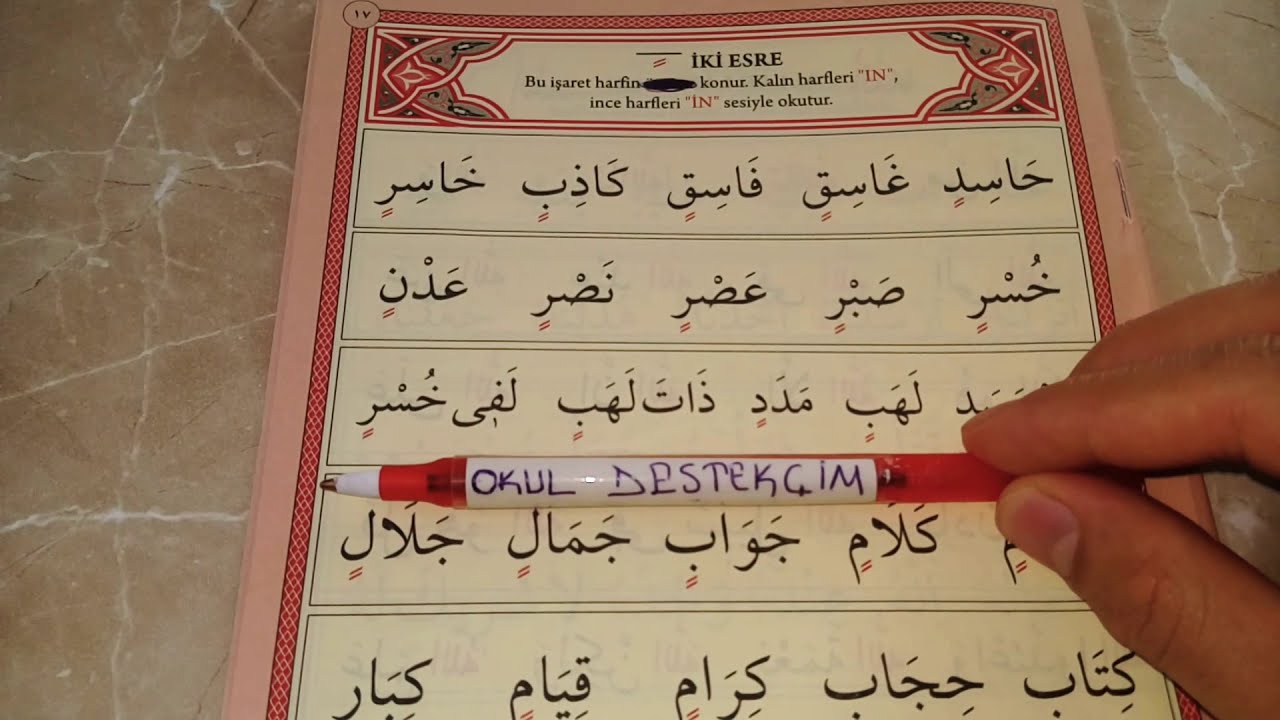 ١٧
İKİ ESRE
Bu işaret harfin konur. Kalın harfleri "IN",
ince harfleri "İN" sesiyle okutur.
حَاسِدٍ غَاسِقٍ فَاسِقٍ كَاذِبٍ خَاسِرٍ
خُسْرٍ صَبْرٍ عَصْرٍ نَصْرٍ عَدْنٍ
لَهَبٍ مَدَدٍ ذَاتَ لَهَبٍ لَفٖى خُسْرٍ
OKUL DESTEKÇİM
كَلَامٍ جَوَابٍ جَمَالٍ جَلَالٍ
كِتَابٍ حِجَابٍ كِرَامٍ قِيَامٍ كِبَارٍ